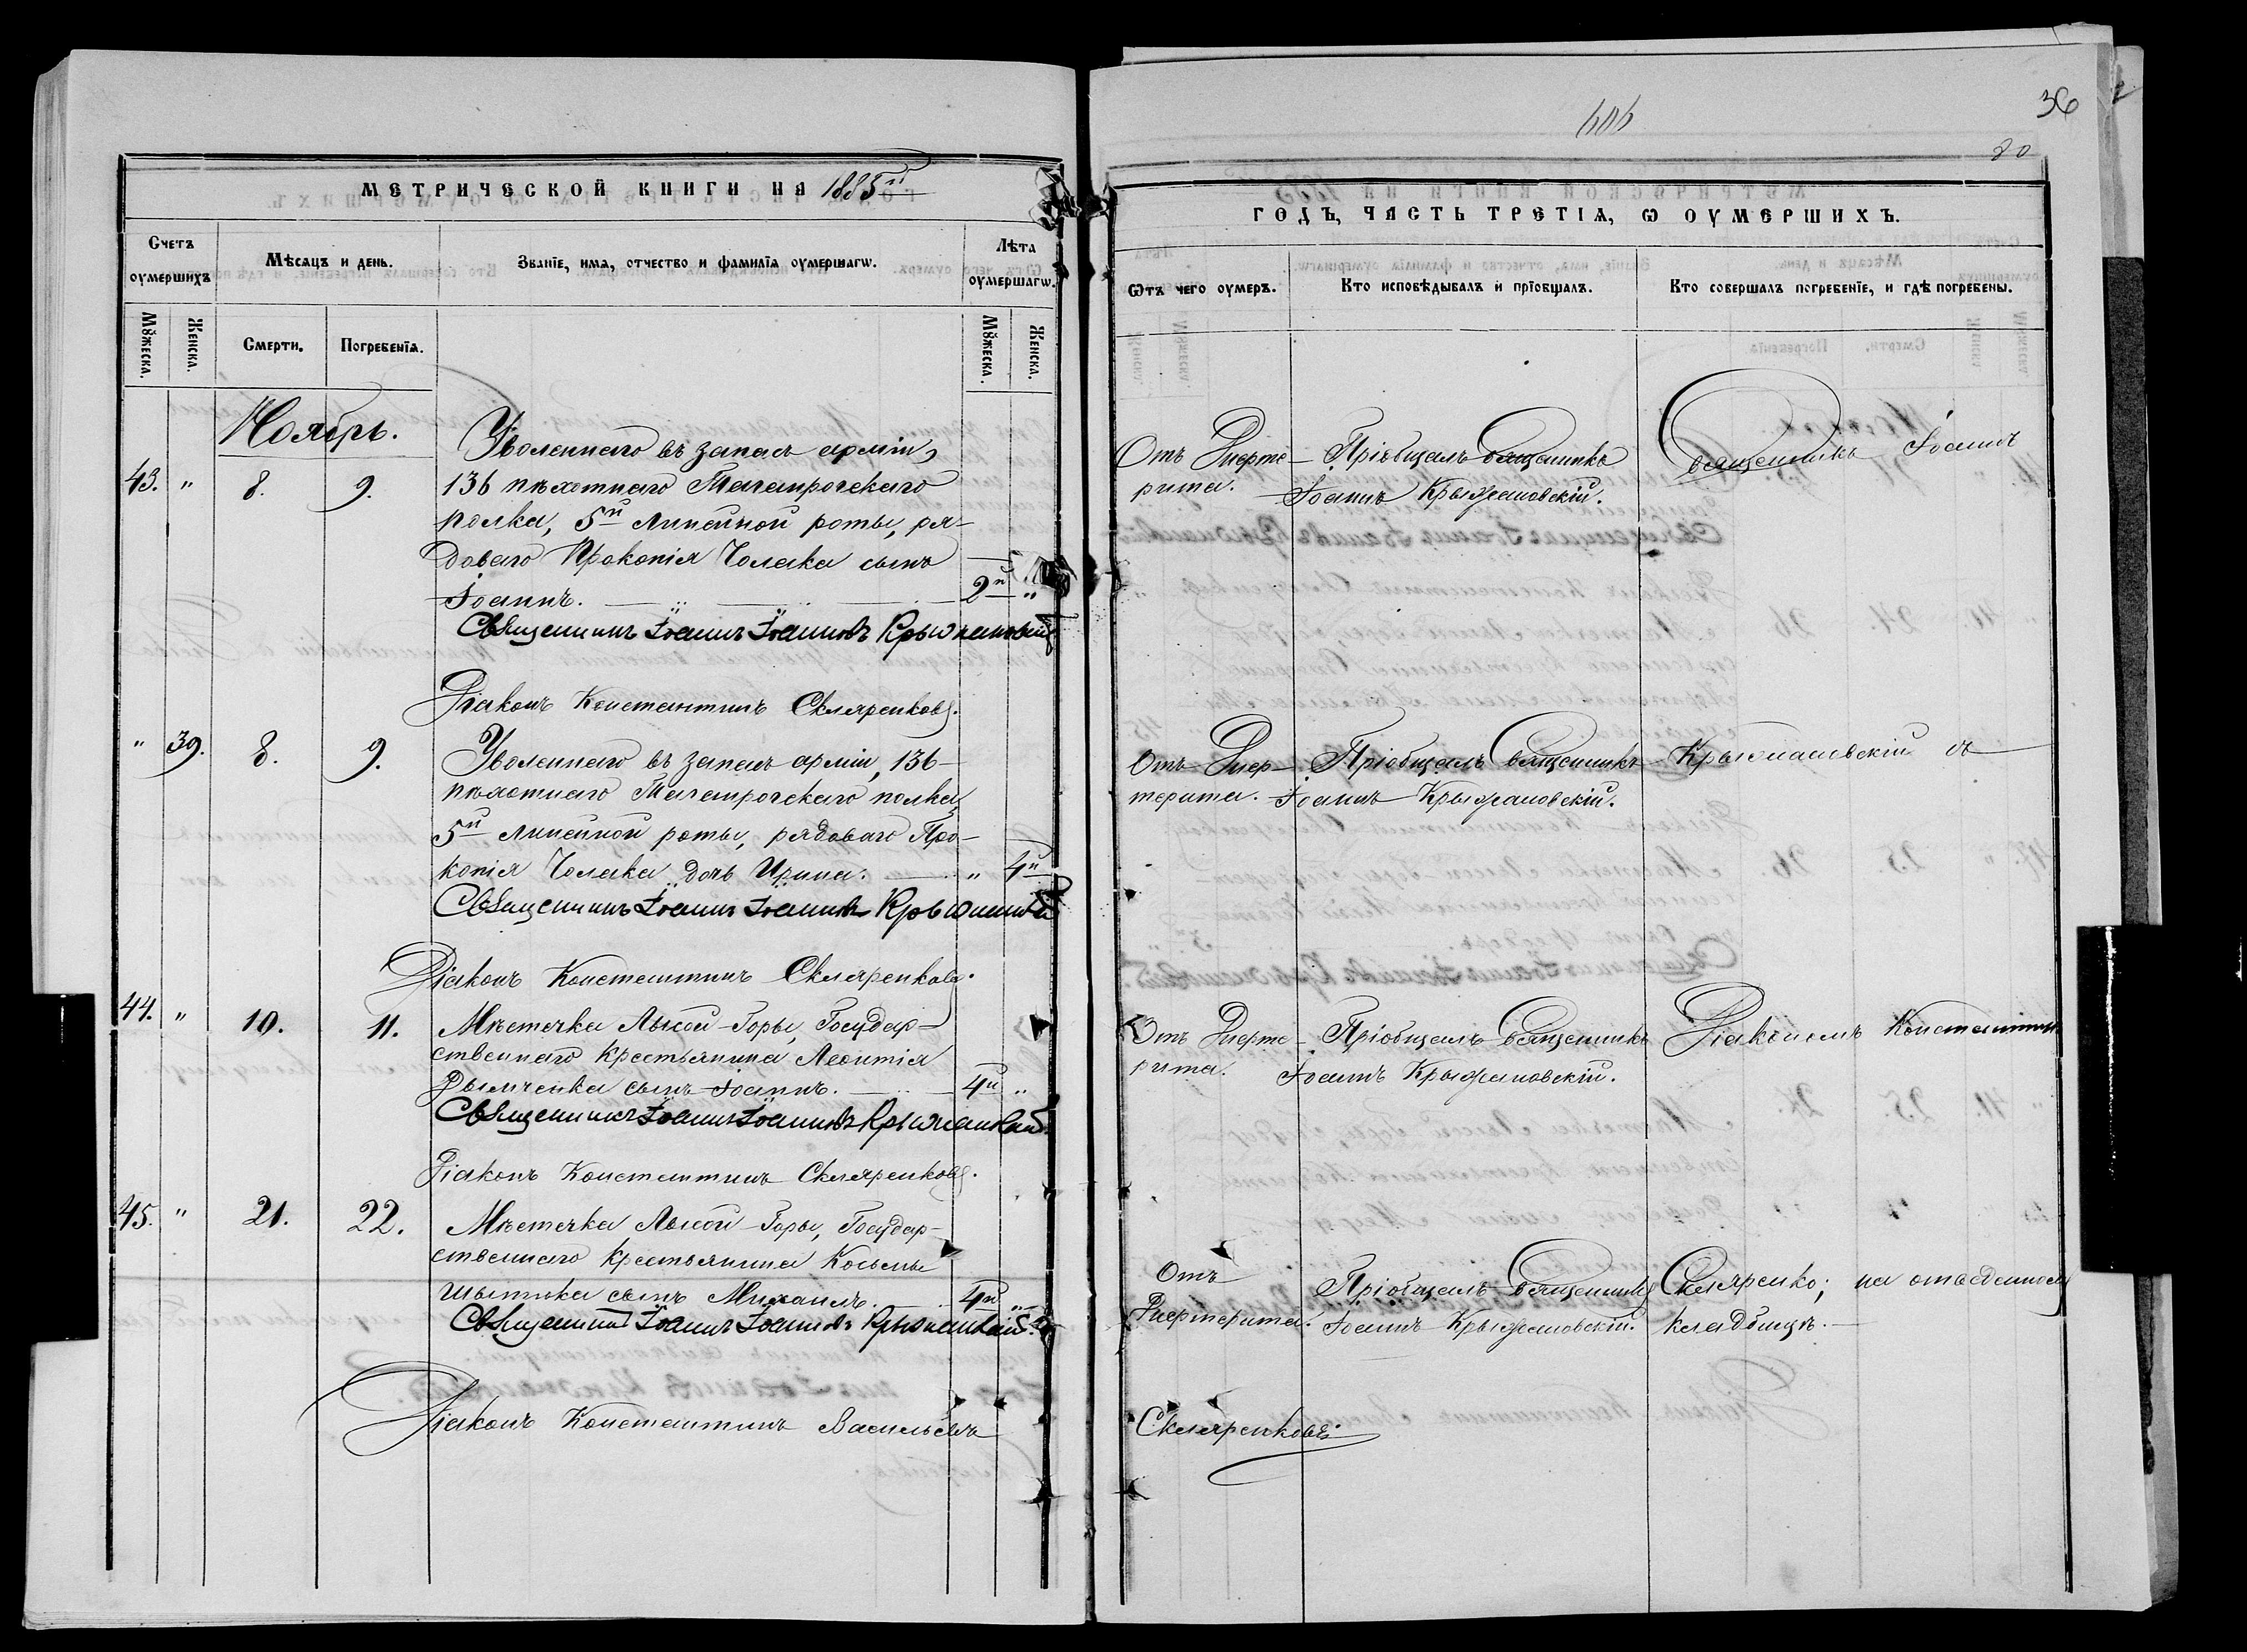 МЕТРИЧЕСКОЙ КНИГИ НА 1885й
Счетъ оумершихъ
Мѣсяцъ и день.
Званіе, имя, отчество и фамилія оумершагѡ.
Лѣта оумершагѡ.
Мꙋжеска.
Женска.
Смерти.
Погребенія.
Мꙋжеска.
Женска.
Ноябрь.
43. " 8. 9.
Уволеннаго въ запасъ арміи,
136 пѣхотнаго Таганрогскаго
полка, 5й линейной роты, ря-
доваго Прокопія Чолака сынъ
Іоаннъ. 2й "
Священникъ Іоаннъ Іоанновъ Крыжановскій
Діаконъ Константинъ Скляренковъ.
" 39. 8. 9.
Уволеннаго въ запасъ арміи, 136-
пѣхотнаго Таганрогскаго полка,
5й линейной роты, рядоваго Про-
копія Чолака дочь Ирина. " 4й
Священникъ Іоаннъ Іоанновъ Крыжановскій
Діаконъ Константинъ Скляренковъ.
44. " 10. 11.
Мѣстечка Лысой-Горы, Государ-
ственнаго крестьянина Леонтія
Дымченка сынъ Іоаннъ. 4й "
Священникъ Іоаннъ Іоанновъ Крыжановскій
Діаконъ Константинъ Скляренковъ.
45. " 21. 22.
Мѣстечка Лысой-Горы, Государ-
ственнаго крестьянина Косьмы
сынъ Михаилъ. 4й "
Священникъ Іоаннъ Іоанновъ Крыжановскій
Діаконъ Константинъ Васильевъ
606
36
80
ГОДЪ, ЧАСТЬ ТРЕТІѦ, Ѡ ОУМЕРШИХЪ.
Ѿтъ чего оумеръ.
Кто исповѣдывалъ и пріобщалъ.
Кто совершалъ погребеніе, и гдѣ погребены.
Отъ Дифте-
рита.
Пріобщалъ Священникъ
Іоаннъ Крыжановскій.
Священникъ Іоаннъ
Отъ Диф-
терита.
Пріобщалъ Священникъ
Іоаннъ Крыжановскій.
Крыжановскій съ
Отъ Дифте-
рита.
Пріобщалъ Священникъ
Іоаннъ Крыжановскій.
Діакономъ Константиномъ
Отъ
Дифтерита.
Пріобщалъ Священникъ
Іоаннъ Крыжановскій.
Скляренко; на отведенномъ
кладбищѣ.
Скляренковъ